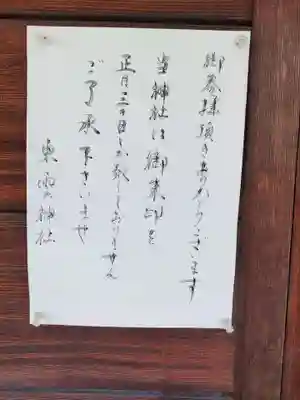 御参拝頂きありがとうございます
当神社は御朱印を
正月三日間しか致しておりません
ご了承下さいませ
東雲神社